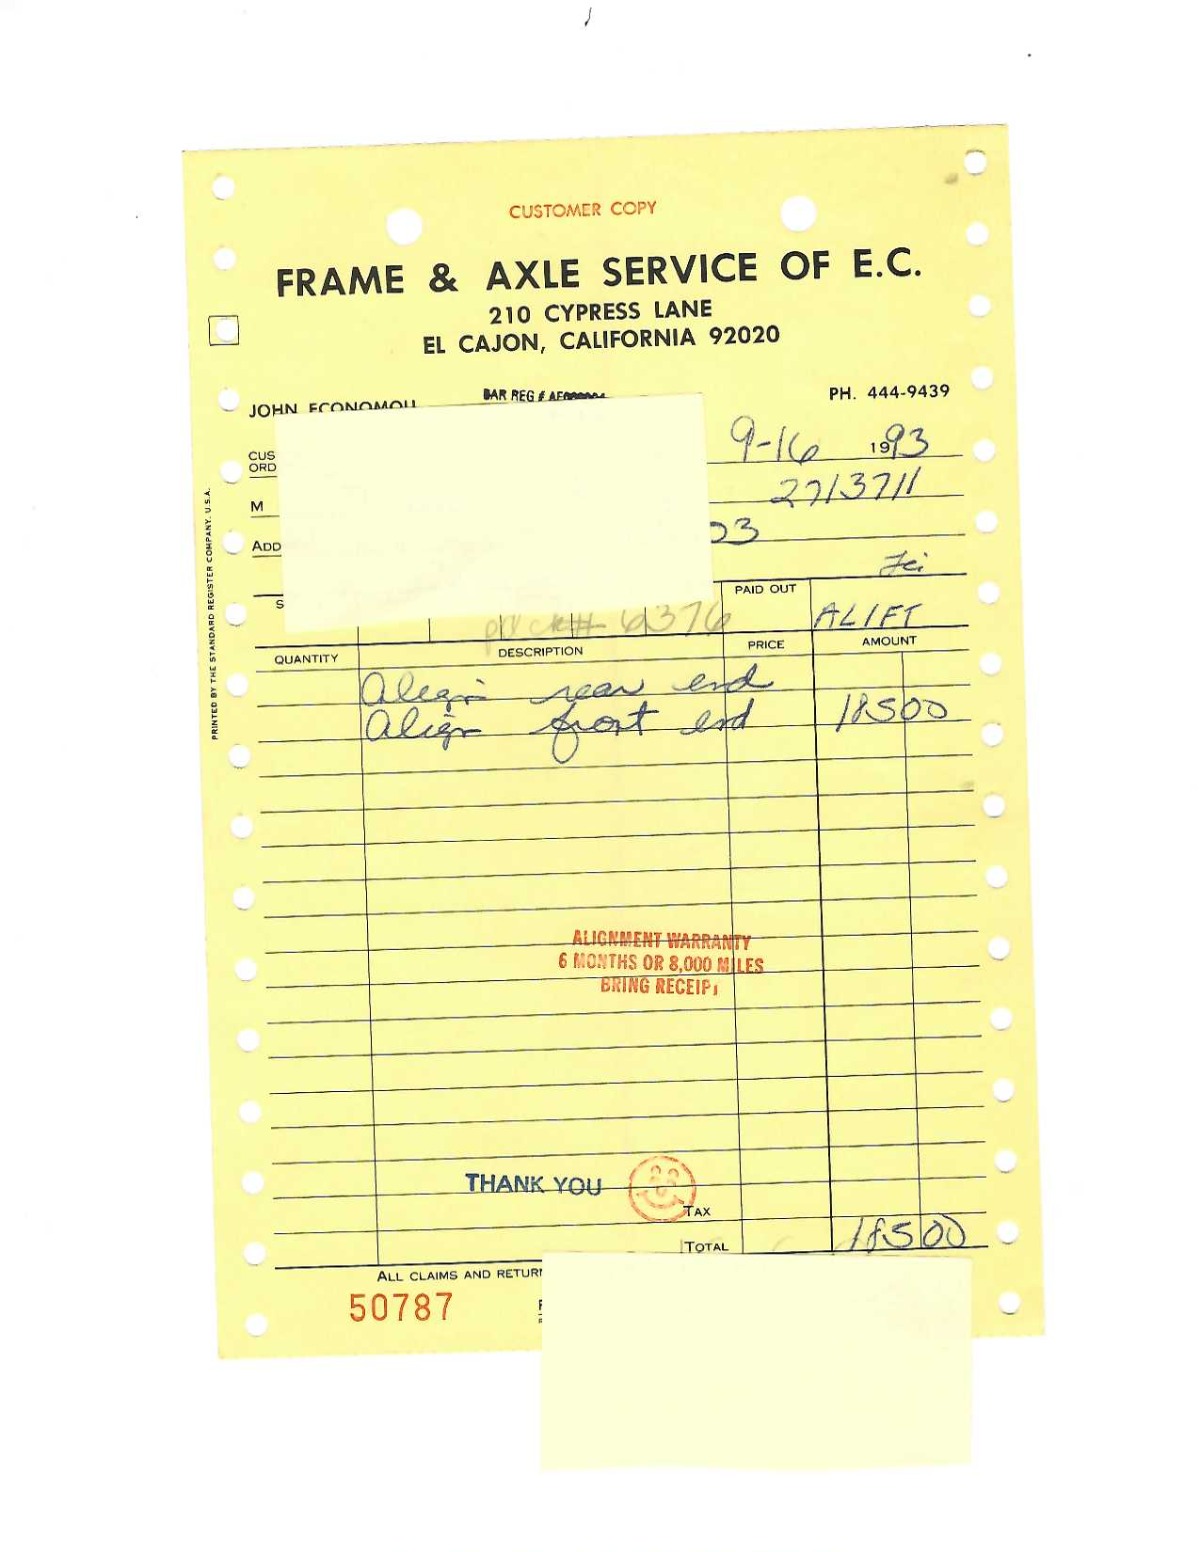 CUSTOMER COPY
FRAME & AXLE SERVICE OF E.C.
210 CYPRESS LANE
EL CAJON, CALIFORNIA 92020
JOHN ECONOMOU
BAR REG #
PH. 444-9439
9-16 1993
CUS
ORD
2713711
M
03
ADD
S
PAID OUT
ALIFT
pd ck# 6376
QUANTITY DESCRIPTION PRICE AMOUNT
Align rear end
Align front end 185 00
PRINTED BY THE STANDARD REGISTER COMPANY, U.S.A.
ALIGNMENT WARRANTY
6 MONTHS OR 8,000 MILES
BRING RECEIPT
THANK YOU
TAX
TOTAL 185 00
ALL CLAIMS AND RETUR
50787